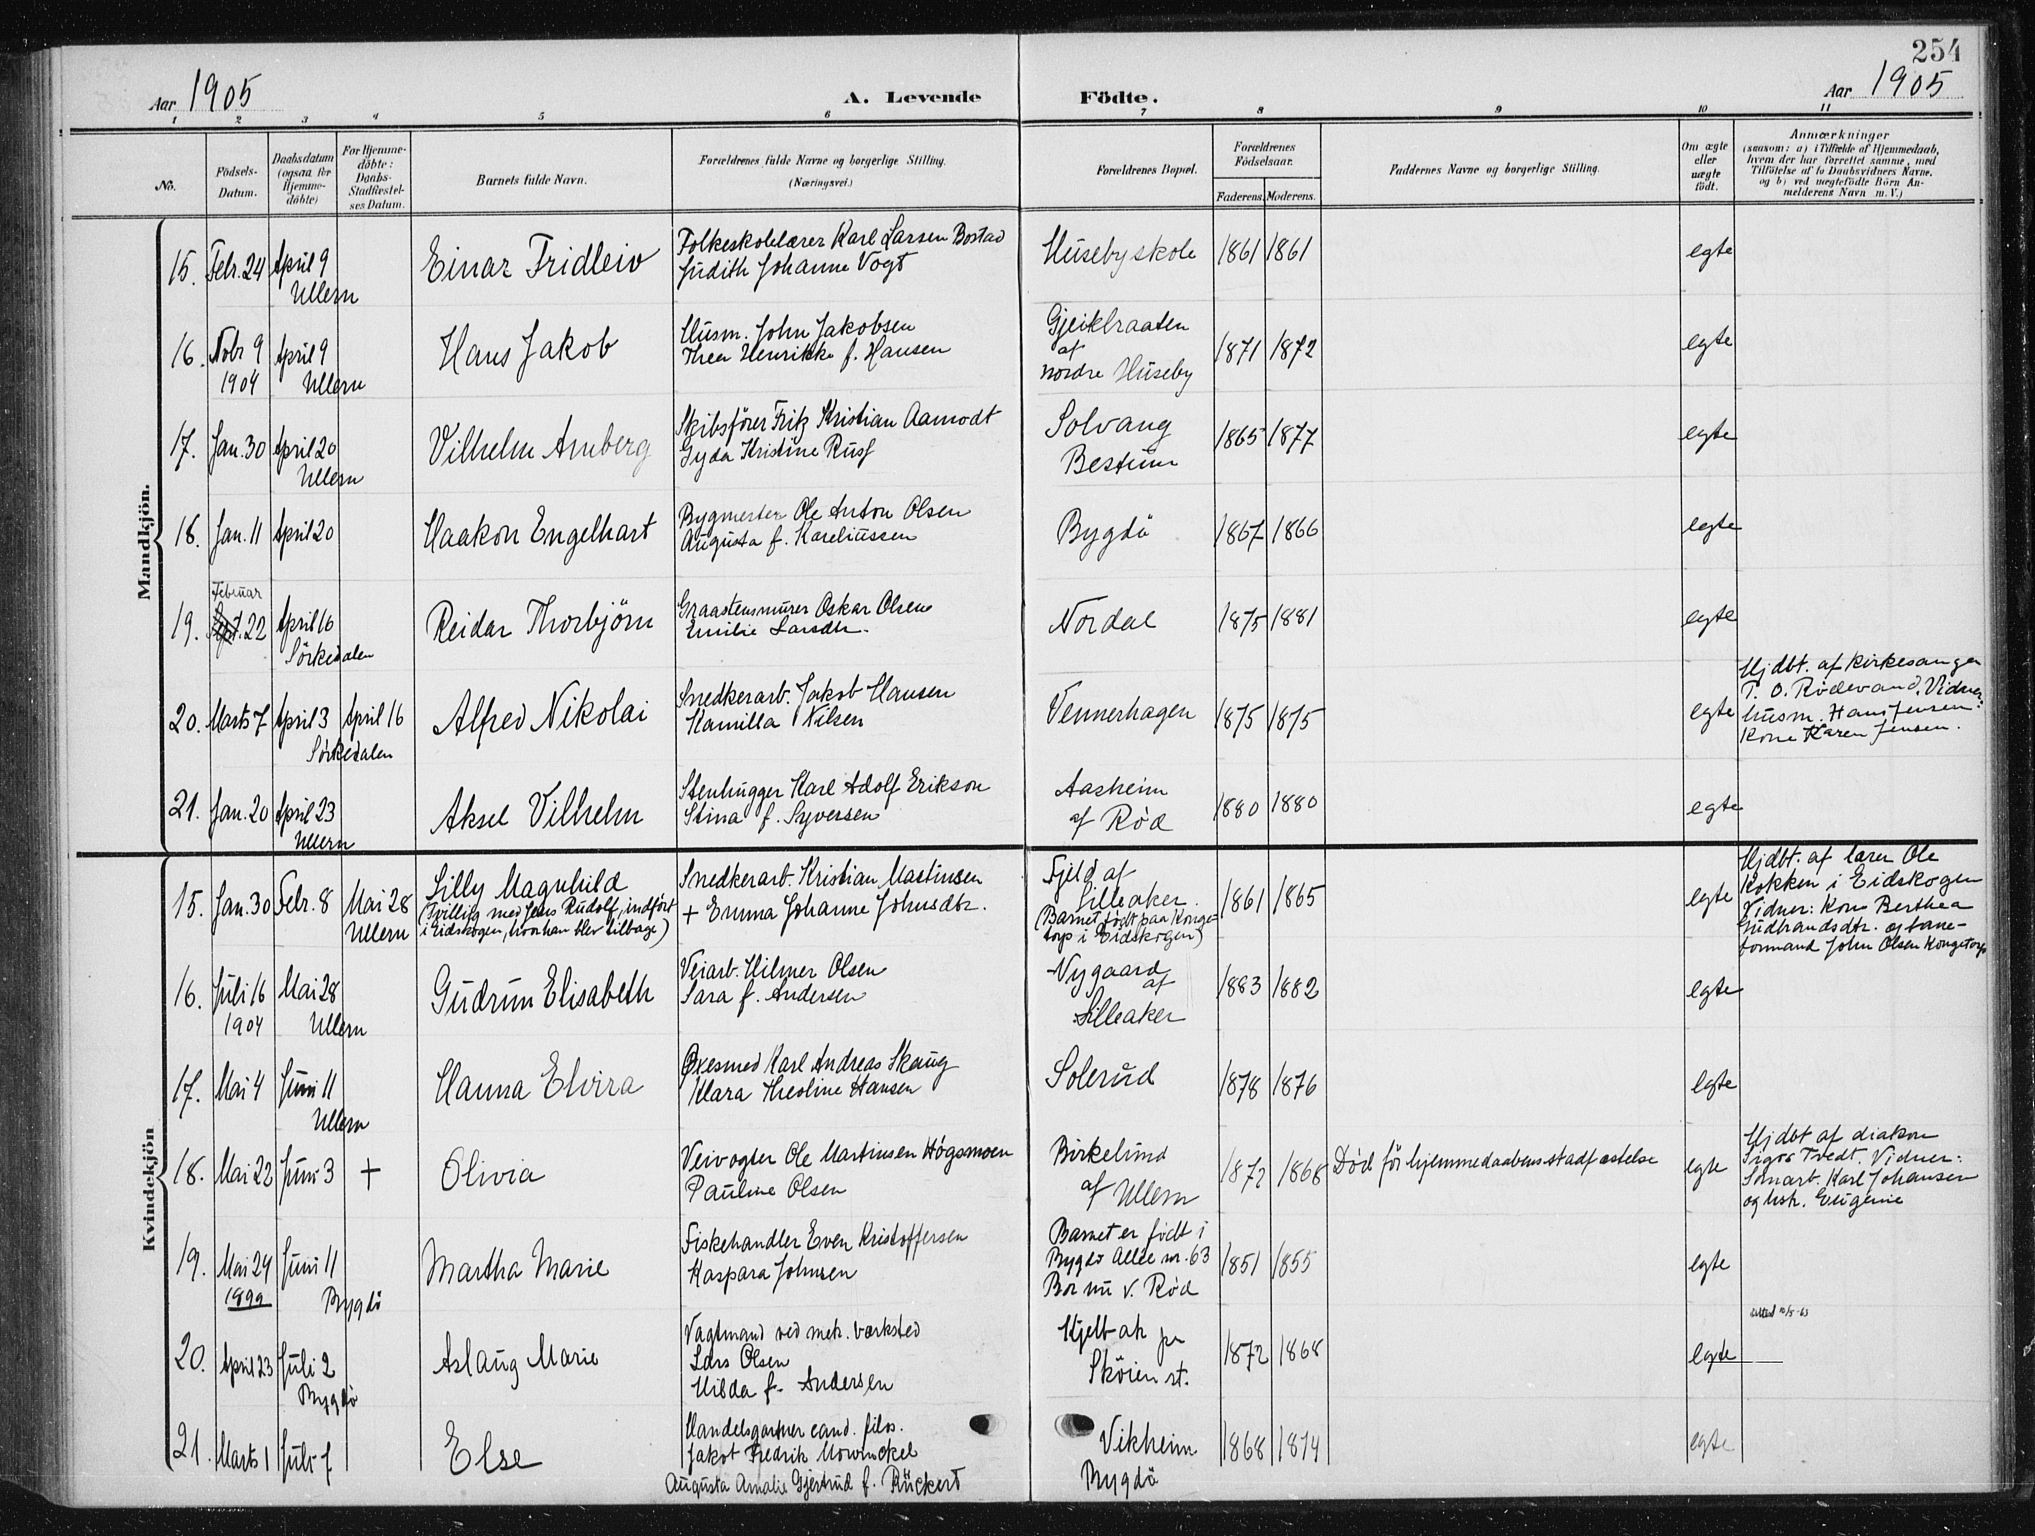 254
Aar 1905 A. Levende Födte. Aar 1905
1 2 3 4 5 6 7 8 9 10 11
No.
Födsels-
Datum.
Daabsdatum
(ogsaa for
Hjemme-
döbte)
For Hjemme-
döbte:
Daabs-
Stadfæstel-
ses Datum.
Barnets fulde Navn.
Forældrenes fulde Navne og borgerlige Stilling.
(Næringsvei.)
Forældrenes Bopæl.
Forældrenes
Födselsaar.
Faderens. Moderens.
Faddernes Navne og borgerlige Stilling.
Om ægte
eller
uægte
födt.
Anmærkninger
(saasom: a) i Tilfælde af Hjemmedaab,
hvem der har forrettet samme, med
Tilföielse af to Daabsvidners Navne,
og b) ved uægtefödte Börn An-
melderens Navn m. V.)
Mandkjön.
15. Febr. 24 April 9
Ullern
Einar Fridleiv
Folkeskolelærer Karl Larsen Bostad
Judith Johanne Vogt
Husebyskole
1861 1861
egte
16. Nobr 9
1904
April 9
Ullern
Hans Jakob
Husm. John Jakobsen
Thea Henrikke f. Hansen
Gjeikbraaten
af
nordre Huseby
1871 1872
egte
17. Jan. 30 April 20
Ullern
Vilhelm Amberg
Skibsfører Fritz Kristian Aamodt
Gyda Kristine Rusf
Solvang
Bestum
1865 1877
egte
18. Jan. 11 April 20
Haakon Engelhart
Bygmester Ole Anton Olsen
Augusta f. Kareliussen
Bygdö
1867 1866
egte
Februar
19. 22 April 16
Sörkedalen
Reidar Thorbjörn
Graastensmurer Oskar Olsen
Emilie Larsdtr.
Nordal
1875 1881
egte
20. Marts 7 April 3 April 16
Sörkedalen
Alfred Nikolai
Snedkerarb. Jakob Hansen
Kamilla Nilsen
Vennerhagen
1875 1875
egte
Hjdbt. af kirkesanger
T. O. Rødevand. Vidner:
husm. Hans Jensen.
Kone Karen Jensen.
21. Jan. 20 April 23
Ullern
Aksel Vilhelm
Stenhugger Karl Adolf Erikson
Stina f. Syversen
Aasheim
af Röd
1880 1880
egte
Kvindekjön
15. Jan. 30 Febr. 8 Mai 28
Ullern
Lilly Magnhild
(Tvilling med Jens Rudolf, indført
i Eidskogen, hvor han blev tilbage)
Snedkerarb. Kristian Martinsen
+ Emma Johanne Johnsdtr.
Fjeld af
Lilleaker.
(Barnet født paa Konge-
torp i Eidskogen)
1861 1865
egte
Hjdbt. af lærer Ole
Kokken i Eidskogen
Vidner: Kone Berthea
Gudbrandsdtr. og bane-
formand John Olsen Kongetorp
16. Juli 16
1904
Mai 28
Ullern
Gudrun Elisabeth
Veiarb. Hilmer Olsen
Sara f. Andersen
Nygaard
af
Lilleaker
1883 1882
egte
17. Mai 4 Juni 11
Ullern
Hanna Elvira
Øxesmed Karl Andreas Skaug
Klara Theoline Hansen
Solerud
1878 1876
egte
18. Mai 22 Juni 3 +
Olivia
Veivogter Ole Martinsen Högsmoen
Pauline Olsen
Birkelund
af Ullern
1872 1868
Död för hjemmedaabens stadfæstelse
egte
Hjdbt af diakon
Sigos Tvedt. Vidner:
Karl Johansen
og hsh. Eugenie
19. Mai 24
1899
Juni 11
Bygdö
Martha Marie
Fiskehandler Even Kristoffersen
Kaspara Johnsen
Barnet er født i
Bygdö Allee nr. 63
Bor nu v. Röd
1851 1855
egte
20. April 23 Juli 2
Bygdö
Aslaug Marie
Vagtmand ved mek. værksted
Lars Olsen
Hilda f. Andersen
Skøien st.
1872 1868
egte
21. Marts 1 Juli 7
Else
Handelsgartner cand. filos.
Jakob Fredrik Mowinckel
Augusta Amalie Gjertrud f. Rückert
Vikheim
Bygdö
1868 1874
egte